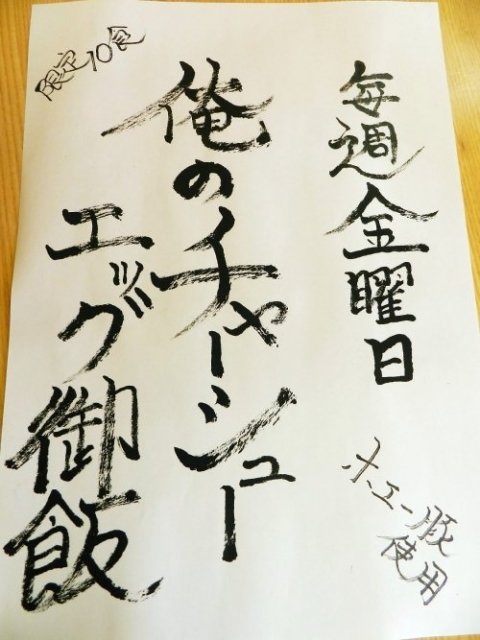 毎週金曜日
俺のチャーシュー
エッグ御飯
限定10食
ホエー豚
使用